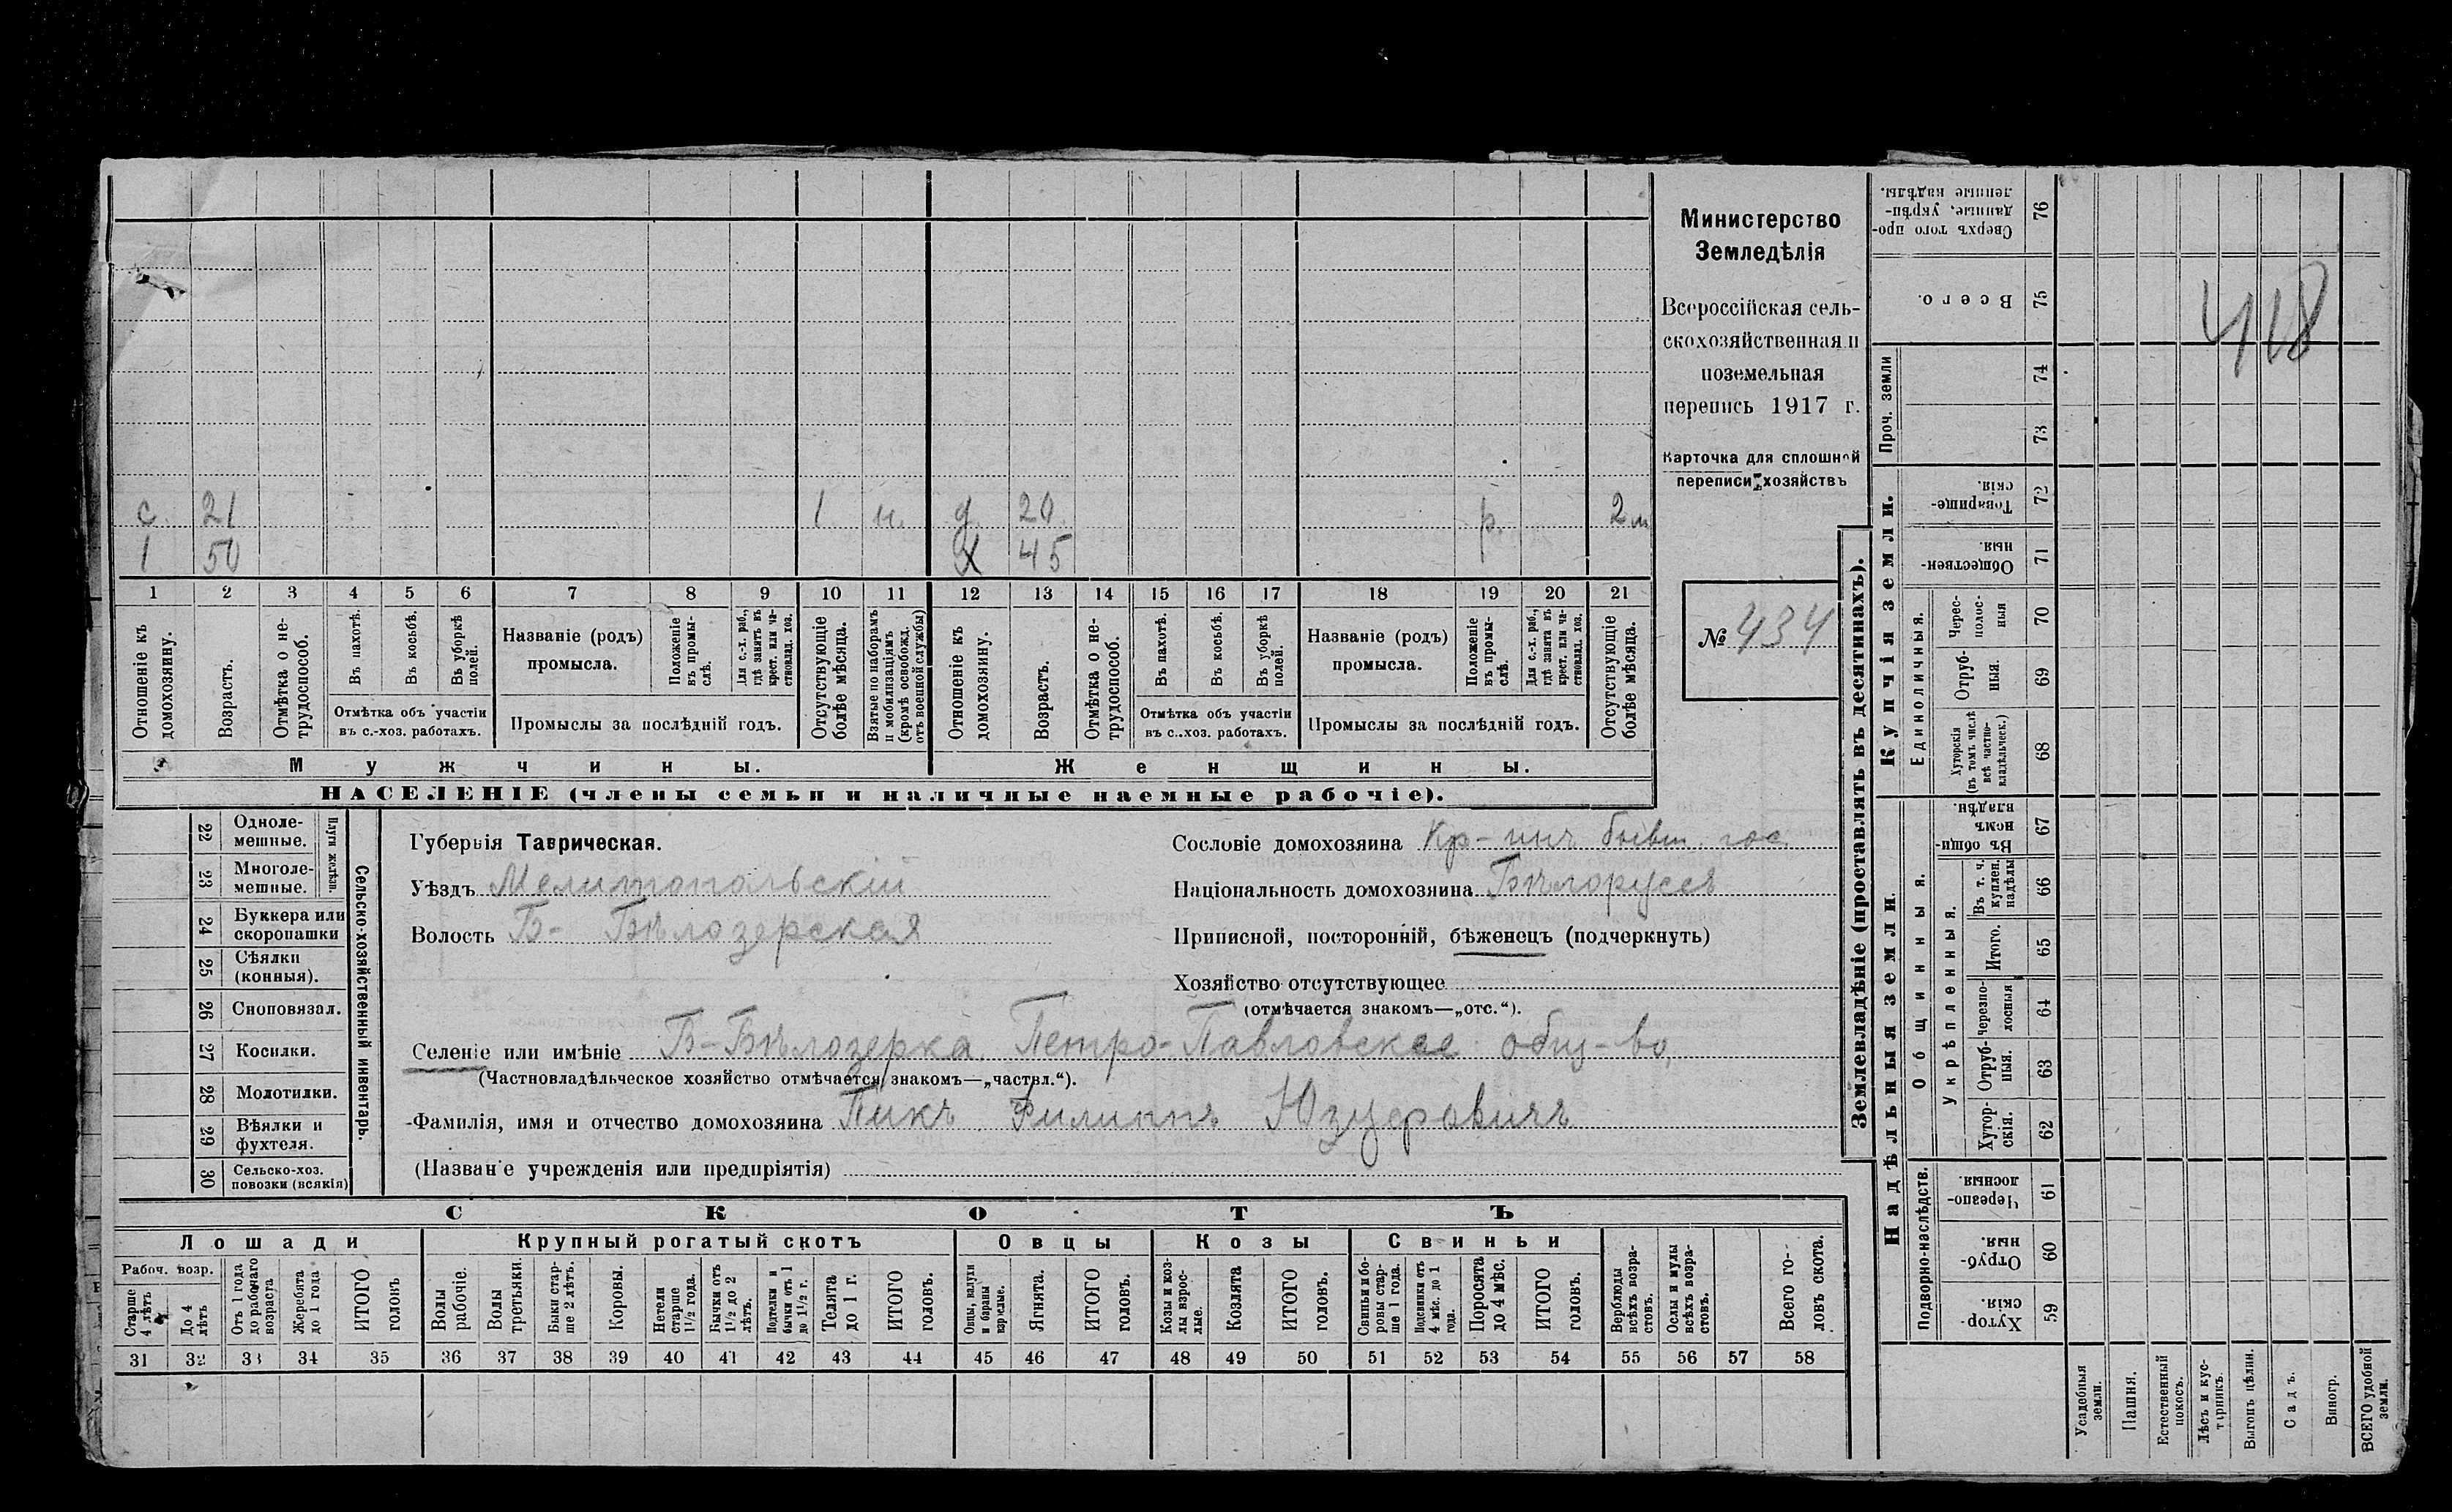 с. 21 1 н. д. 20. р. 2 м
1 50 Х 45
1 2 3 4 5 6 7 8 9 10 11 12 13 14 15 16 17 18 19 20 21
Отношеніе къ домохозяину.
Возрастъ.
Отмѣтка о не-трудоспособ.
Въ пахотѣ.
Въ косьбѣ.
Въ уборкѣ полей.
Отмѣтка объ участіи
въ с.-хоз. работахъ.
Названіе (родъ)
промысла.
Положеніе въ промы-слѣ.
Для с.-х. раб., гдѣ занятъ въ крест. или ча-стновлад. хоз.
Промыслы за послѣдній годъ.
Отсутствующіе болѣе мѣсяца.
Взятые по наборамъ и мобилизаціямъ (кромѣ освобожд. отъ военной службы)
Отношеніе къ домохозяину.
Возрастъ.
Отмѣтка о не-трудоспособ.
Въ пахотѣ.
Въ косьбѣ.
Въ уборкѣ полей.
Отмѣтка объ участіи
въ с.-хоз. работахъ.
Названіе (родъ)
промысла.
Положеніе въ промы-слѣ.
Для с.-х. раб., гдѣ занята въ крест. или ча-стновлад. хоз.
Промыслы за послѣдній годъ.
Отсутствующіе болѣе мѣсяца.
Мужчины. Женщины.
НАСЕЛЕНІЕ (члены семьи и наличные наемные рабочіе).
Министерство
Земледѣлія
Всероссійская сель-
скохозяйственная и
поземельная
перепись 1917 г.
Карточка для сплошной
переписи хозяйствъ
№ 434
22 Одноле-мешные.
23 Многоле-мешные.
Плуги желѣзн.
24 Буккера или скоропашки
25 Сѣялки (конныя).
26 Сноповязал.
27 Косилки.
28 Молотилки.
29 Вѣялки и фухтеля.
30 Сельско-хоз. повозки (всякія)
Сельско-хозяйственный инвентарь.
Губернія Таврическая.
Уѣздъ Мелитопольскій
Волость Б- Бѣлозерская
Сословіе домохозяина Кр-нинъ бывш. гос.
Національность домохозяина Бѣлоруссъ
Приписной, посторонній, бѣженецъ (подчеркнуть)
Хозяйство отсутствующее
(отмѣчается знакомъ—„отс.“).
Селеніе или имѣніе Б-Бѣлозерка. Петро-Павловское общ-во,
(Частновладѣльческое хозяйство отмѣчается знакомъ—„частвл.“).
Фамилія, имя и отчество домохозяина Пикъ Филиппъ Юзуфовичъ
(Названіе учрежденія или предпріятія)
СКОТЪ
Лошади Крупный рогатый скотъ Овцы Козы Свиньи
Рабоч. возр.
Старше 4 лѣтъ
До 4 лѣтъ
Отъ 1 года до рабочаго возраста
Жеребята до 1 года
ИТОГО головъ
Волы рабочіе.
Волы третьяки.
Быки стар-ше 2 лѣтъ.
Коровы.
Нетели старше 1½ года.
Бычки отъ 1½ до 2 лѣтъ.
Подтелки и бычки отъ 1 до 1½ г.
Телята до 1 г.
ИТОГО головъ.
Овцы, валухи и бараны взрослые.
Ягнята.
ИТОГО головъ.
Козы и коз-лы взрос-лые.
Козлята
ИТОГО головъ.
Свиньи и бо-ровы стар-ше 1 года.
Подсвинки отъ 4 мѣс. до 1 года.
Поросята до 4 мѣс.
ИТОГО головъ.
Верблюды всѣхъ возра-стовъ.
Ослы и мулы всѣхъ возра-стовъ.
Всего го-ловъ скота.
31 32 33 34 35 36 37 38 39 40 41 42 43 44 45 46 47 48 49 50 51 52 53 54 55 56 57 58
Землевладѣніе (проставлять въ десятинахъ).
Сверхъ того про-данные, укрѣп-ленные надѣлы. 76
Всего. 75
418
Проч. земли
74
73
Купчія земли.
Товарище-скія. 72
Обществен-ныя. 71
Единоличныя.
Черес-полос-ныя 70
Отруб-ныя. 69
Хуторскія (въ томъ числѣ всѣ частно-владѣльческ.) 68
Надѣльныя земли.
Общинныя.
Въ общин-номъ владѣн. 67
Укрѣпленныя.
Въ т. ч. куплен. надѣлы 66
Итого. 65
Черезпо-лосныя 64
Отруб-ныя. 63
Хутор-скія. 62
Подворно-наслѣдств.
Черезпо-лосныя. 61
Отруб-ныя. 60
Хутор-скія. 59
Усадебныя земли.
Пашня.
Естественный покосъ.
Лѣсъ и кус-тарникъ.
Выгонъ цѣлин.
Садъ.
Виногр.
ВСЕГО удобной земли.